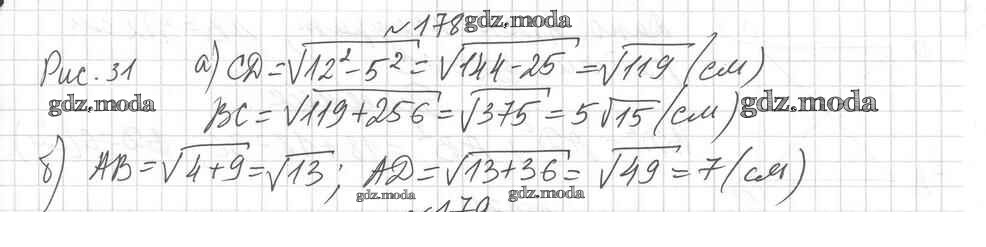 №178 gdz.moda
Рис. 31 а) CD = √(12² - 5²) = √(144 - 25) = √119 (см)
gdz.moda BC = √(119 + 256) = √375 = 5√15 (см) gdz.moda
б) AB = √(4 + 9) = √13; AD = √(13 + 36) = √49 = 7 (см)
gdz.moda gdz.moda
№179